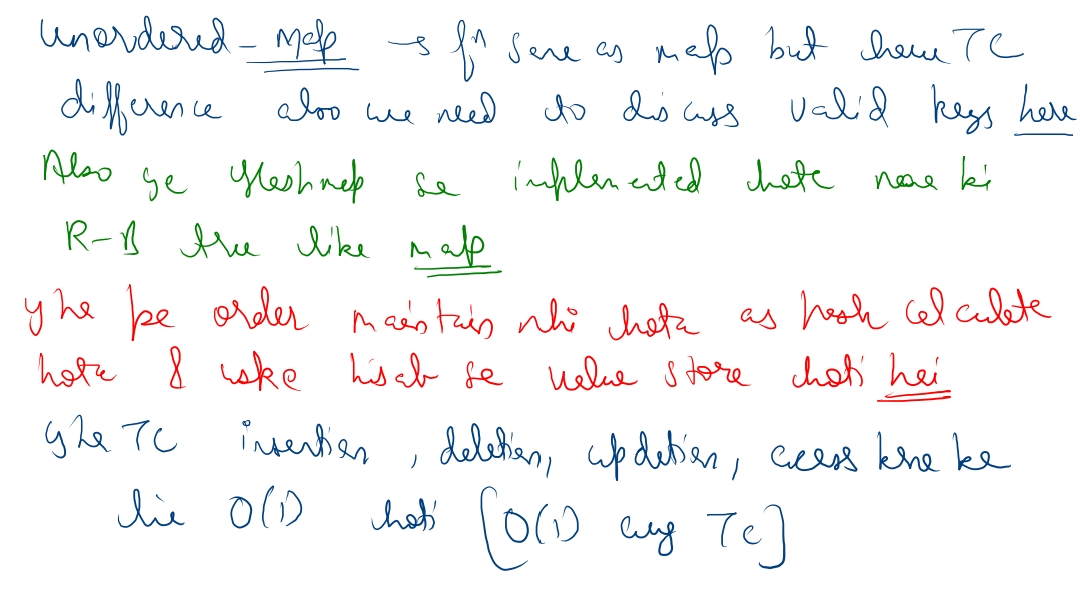 unordered_map → fn same as map but have TC
difference also we need to discuss valid keys here
Also ye Hashmap se implemented hote naa ki
R-B tree like map
yha pe order maintain nhi hota as hash calculate
hota & uske hisab se value store hoti hai
yha TC insertion, deletion, updation, access krne ke
lie O(1) hoti [O(1) avg TC]